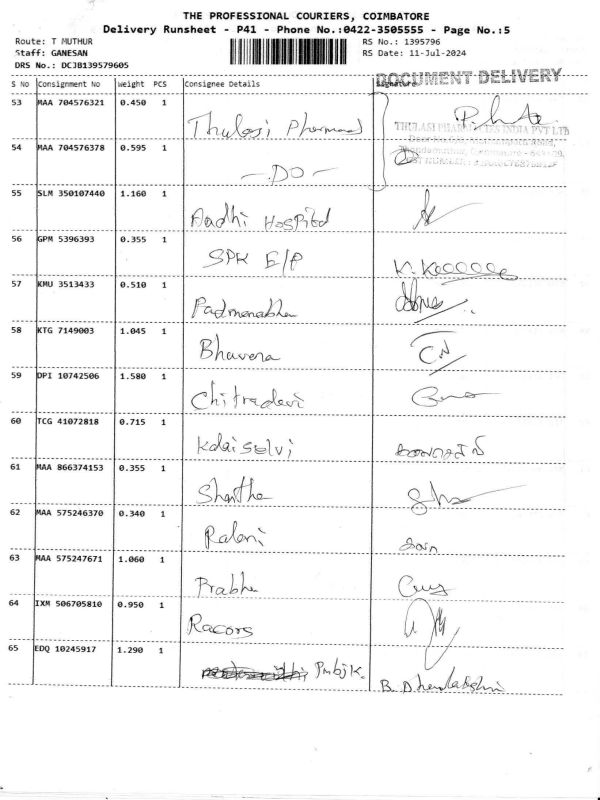 THE PROFESSIONAL COURIERS, COIMBATORE
Delivery Runsheet - P41 - Phone No.:0422-3505555 - Page No.:5
Route: T MUTHUR RS No.: 1395796
Staff: GANESAN RS Date: 11-Jul-2024
DRS No.: DCJB139579605
DOCUMENT DELIVERY
S No Consignment No Weight PCS Consignee Details Signature
53 MAA 704576321 0.450 1
Thulasi
THULASI PHARMACIES INDIA PVT LTD
54 MAA 704576378 0.595 1
- DO -
55 SLM 350107440 1.160 1
Aadhi Hospital
56 GPM 5396393 0.355 1
SPK E/P
57 KMU 3513433 0.510 1
Padmanabha
58 KTG 7149003 1.045 1
Bhavena
59 DPI 10742506 1.580 1
Chitradevi
60 TCG 41072818 0.715 1
Kalaiselvi
61 MAA 866374153 0.355 1
Shantha
62 MAA 575246370 0.340 1
63 MAA 575247671 1.060 1
Prabha
64 IXM 506705810 0.950 1
Racors
65 EDQ 10245917 1.290 1